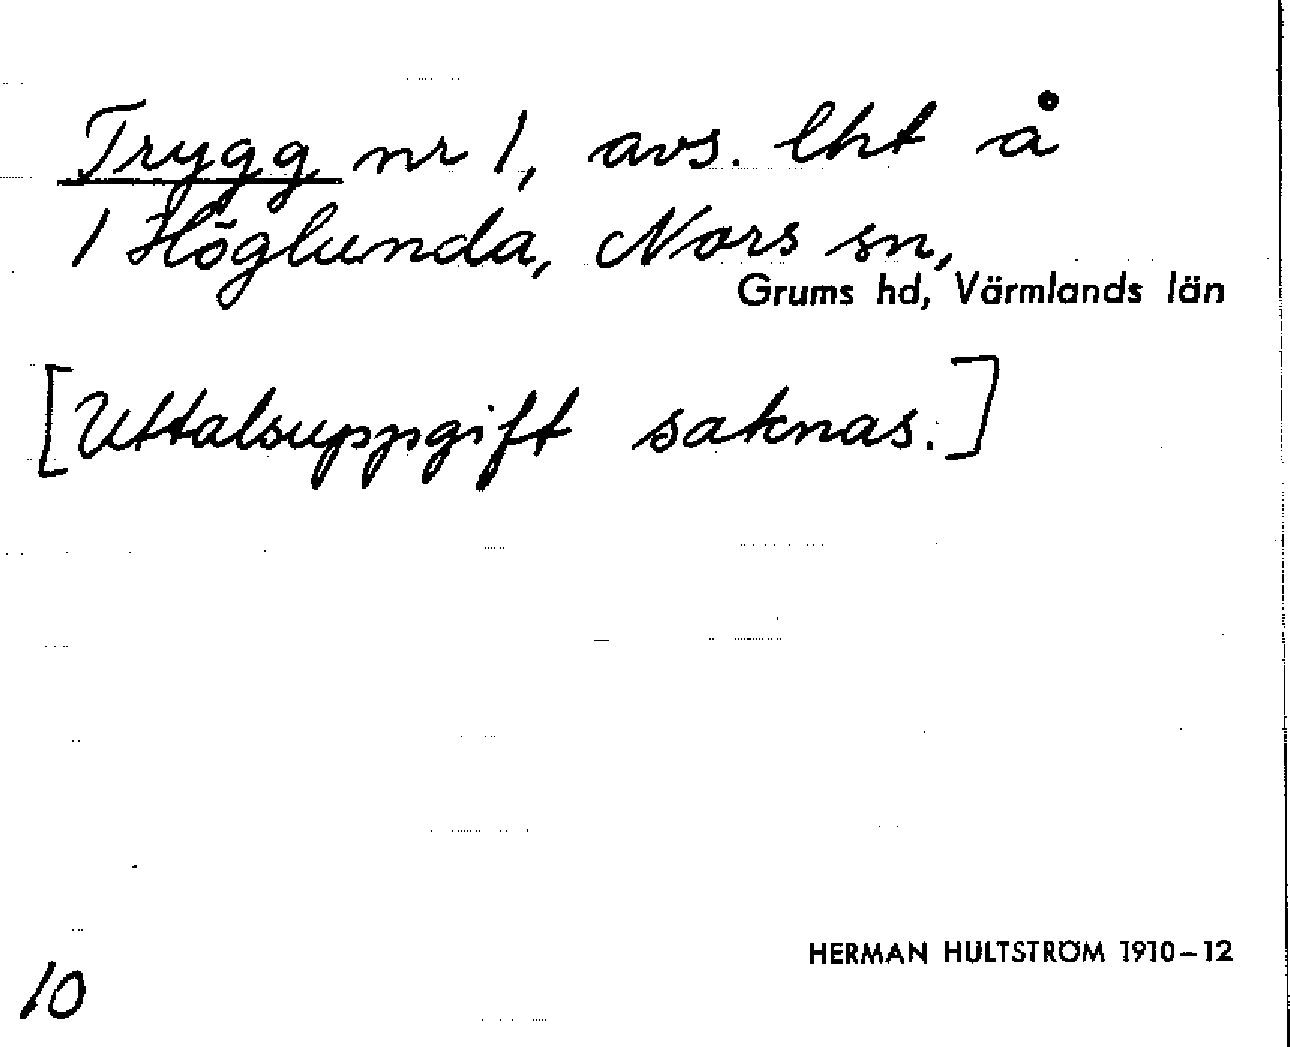 Trygg nr 1, avs. lht å
1 Höglunda, Nors sn,
Grums hd, Värmlands län
[Uttalsuppgift saknas.]
HERMAN HULTSTRÖM 1910–12
10